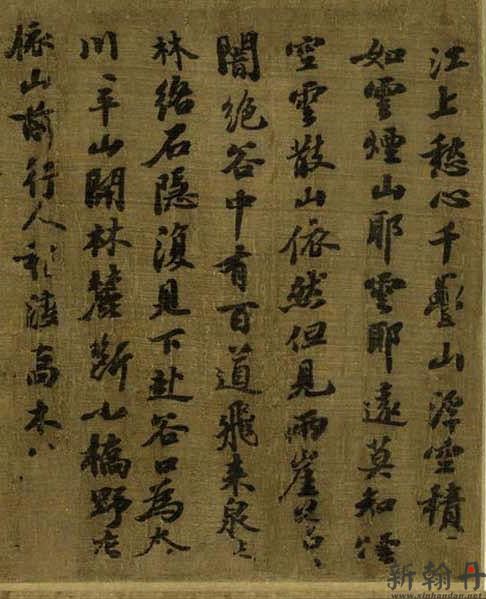 江上愁心千疊山浮空積
如雲煙山耶雲耶遠莫知煙
空雲散山依然但見兩崖蒼〻
闇絕谷中有百道飛來泉
林絡石隱復見下赴谷口為
川〻平山開林麓斷小橋野店
依山前行人稍度高木
新翰丹
www.xinhandan.net